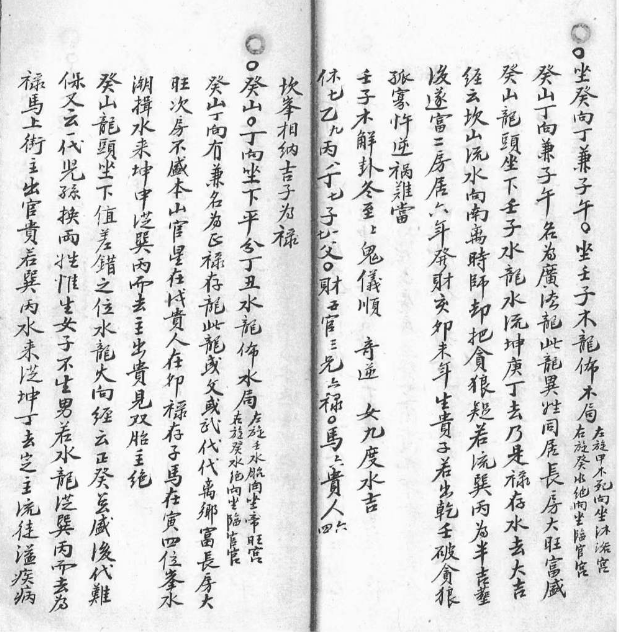 坐癸向丁兼子午○坐壬子木龍佈木局
左旋甲木死向坐沐浴宮
右旋癸水絕向坐臨官宮
癸山丁向兼子午名為廣法龍此龍異姓同居長房大旺富盛
癸山龍頭坐下壬子水龍水流坤庚丁去乃是祿存水去大吉
經云坎山流水向南离時師却把貪狼疑若流巽丙為半吉塟
後遂富二房居六年發財亥卯未年生貴子若出乾壬破貪狼
孤寡忤逆禍難當
壬子木解卦冬至上鬼儀順 奇逆 女九度水吉
休七乙九丙八丁七子七父○財五官三兄六祿○馬六貴人六四
坎峯相納吉子為祿
癸山○丁向坐下平分丁丑水龍佈水局
左旋壬水胎向坐帝旺宮
右旋癸水絕向坐臨官宮
癸山丁向有兼名為正祿存龍此龍或文或武代代离鄉富長房大
旺次房不盛本山官星在戌貴人在卯祿存子馬在寅四位峯水
潮揖水来坤申從巽丙而去主出貴見双胎主絕
癸山龍頭坐下值差錯之位水龍火向經云正癸豈盛後代難
保又云一代児孫挾兩姓惟生女子不生男若水龍從巽丙而去為
祿馬上街主出官貴若巽丙水来從坤丁去定主流徒溢疾病